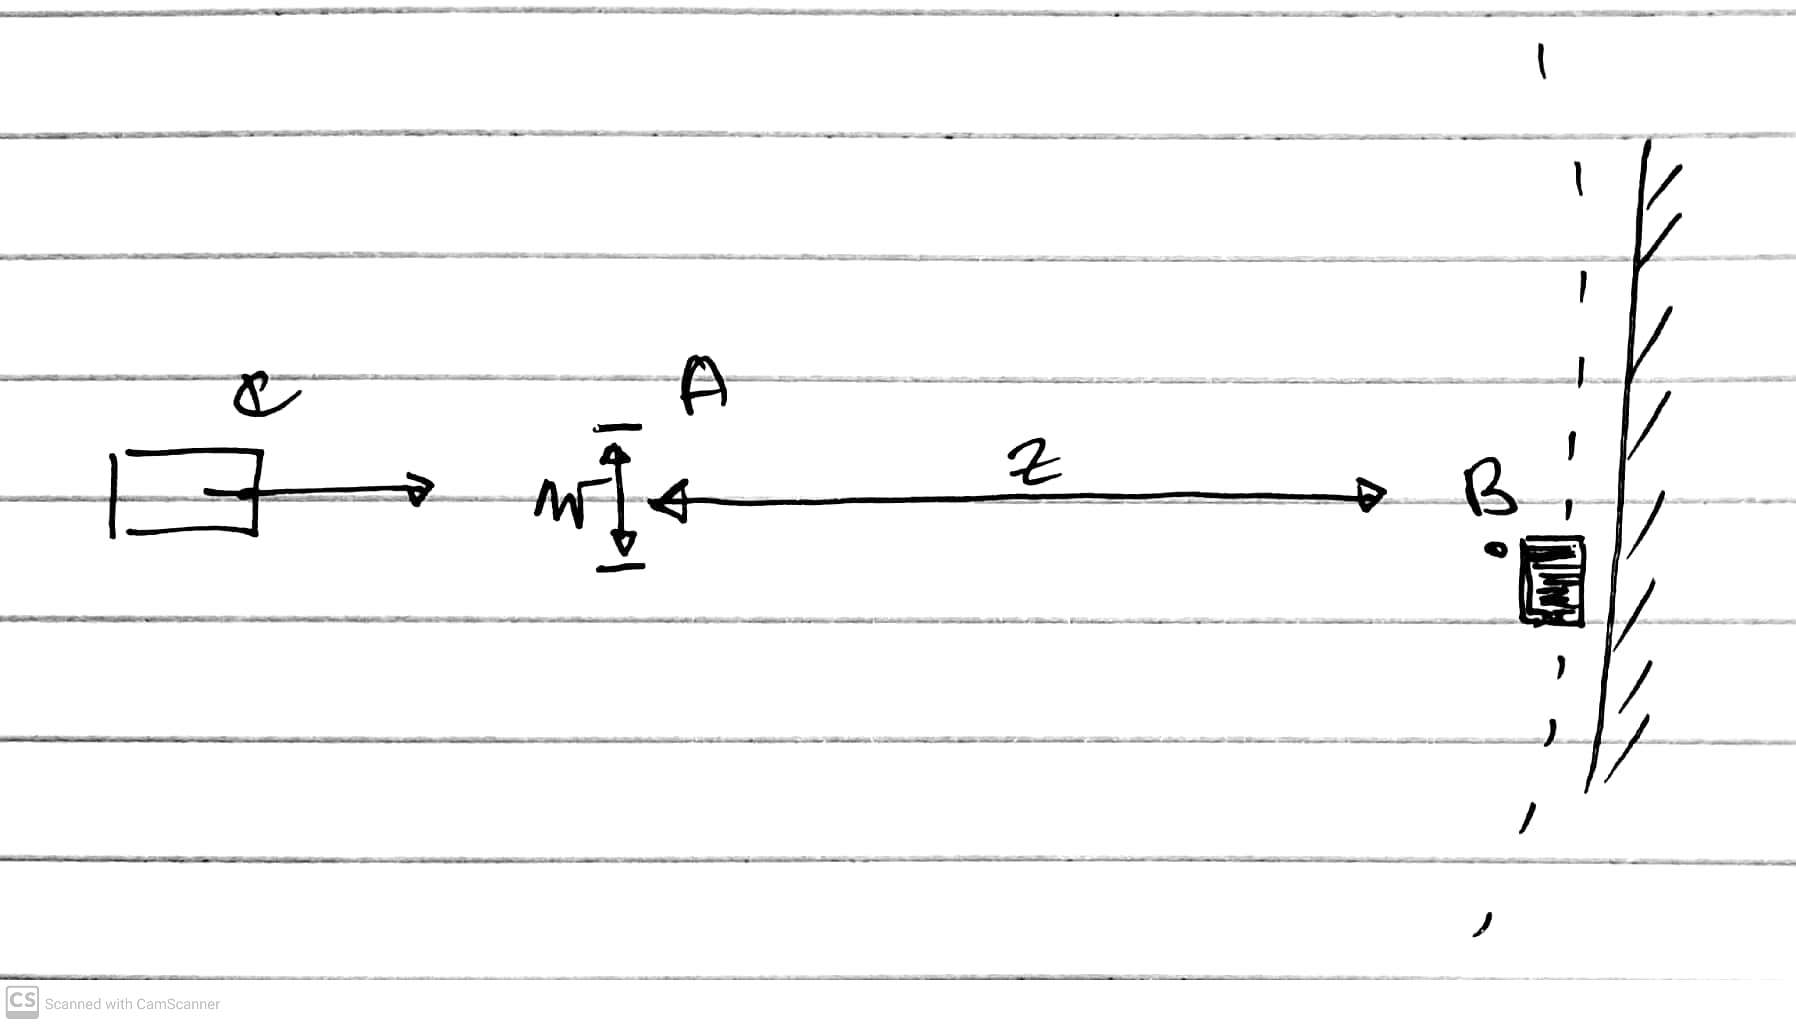 A
z
B
CS Scanned with CamScanner